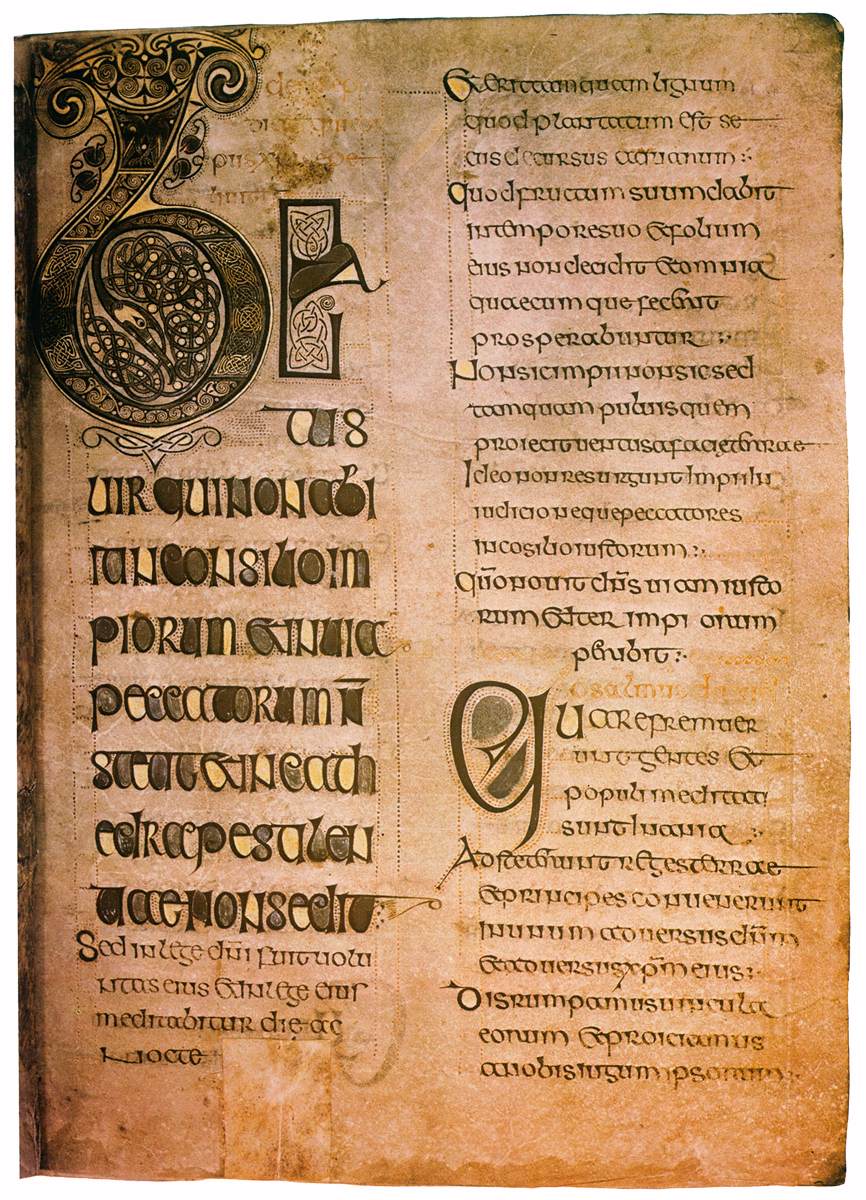 BEA
tus
uir qui non abi
it in consilio im
piorum & in uia
peccatorum n̄
stetit & in cath
edra pestilen
tiae non sedit
Sed in lege dn̄i fuit uolu
ntas eius & in lege eius
meditabitur die ac
nocte
& erit tamquam lignum
quod plantatum est se
cus decursus aquarum
Quod fructum suum dabit
in tempore suo & folium
eius non decidit & omnia
quaecumque fecerit
prosperabuntur
Non sic impii non sic sed
tamquam puluis quem
proiecit uentus a facie terrae
Ideo non resurgunt impii in
iudicio neque peccatores
in cosilio iustorum
Qm̄ nouit dn̄s uiam iusto
rum & iter impiorum
peribit
Quare fremuer
unt gentes &
populi meditati
sunt inania
Adsteterunt reges terrae
& principes conuenerunt
in unum aduersus dn̄m
& aduersus xp̄m eius
Disrumpamus uincula
eorum & proiciamus
a nobis iugum ipsorum